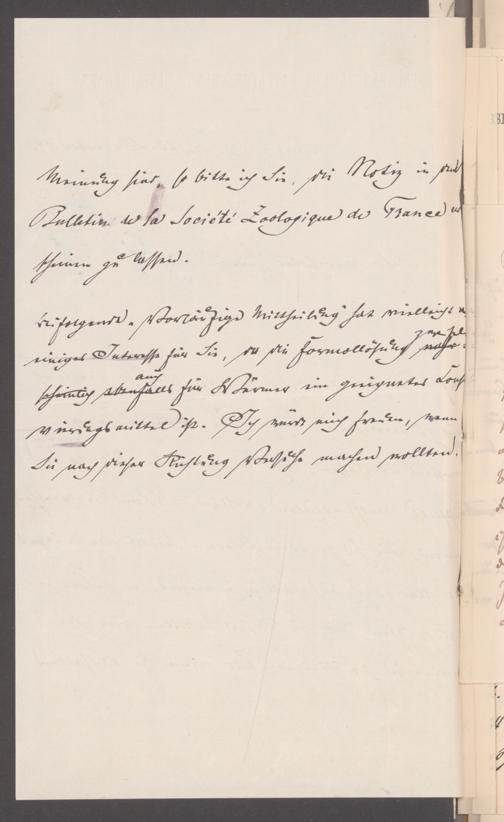 Meinung sind, so bitte ich Sie, die Notiz in dem
Bulletin de la Société Zoologique de France er
scheinen zu lassen.
Beifolgende "Vorläufige Mittheilung" hat vielleicht
einiges Interesse für Sie, da die Formollösung
auch
für Würmer ein geeignetes Conser
virungsmittel ist. Ich würde mich freuen, wenn
Sie nach dieser Richtung Versuche machen wollten!